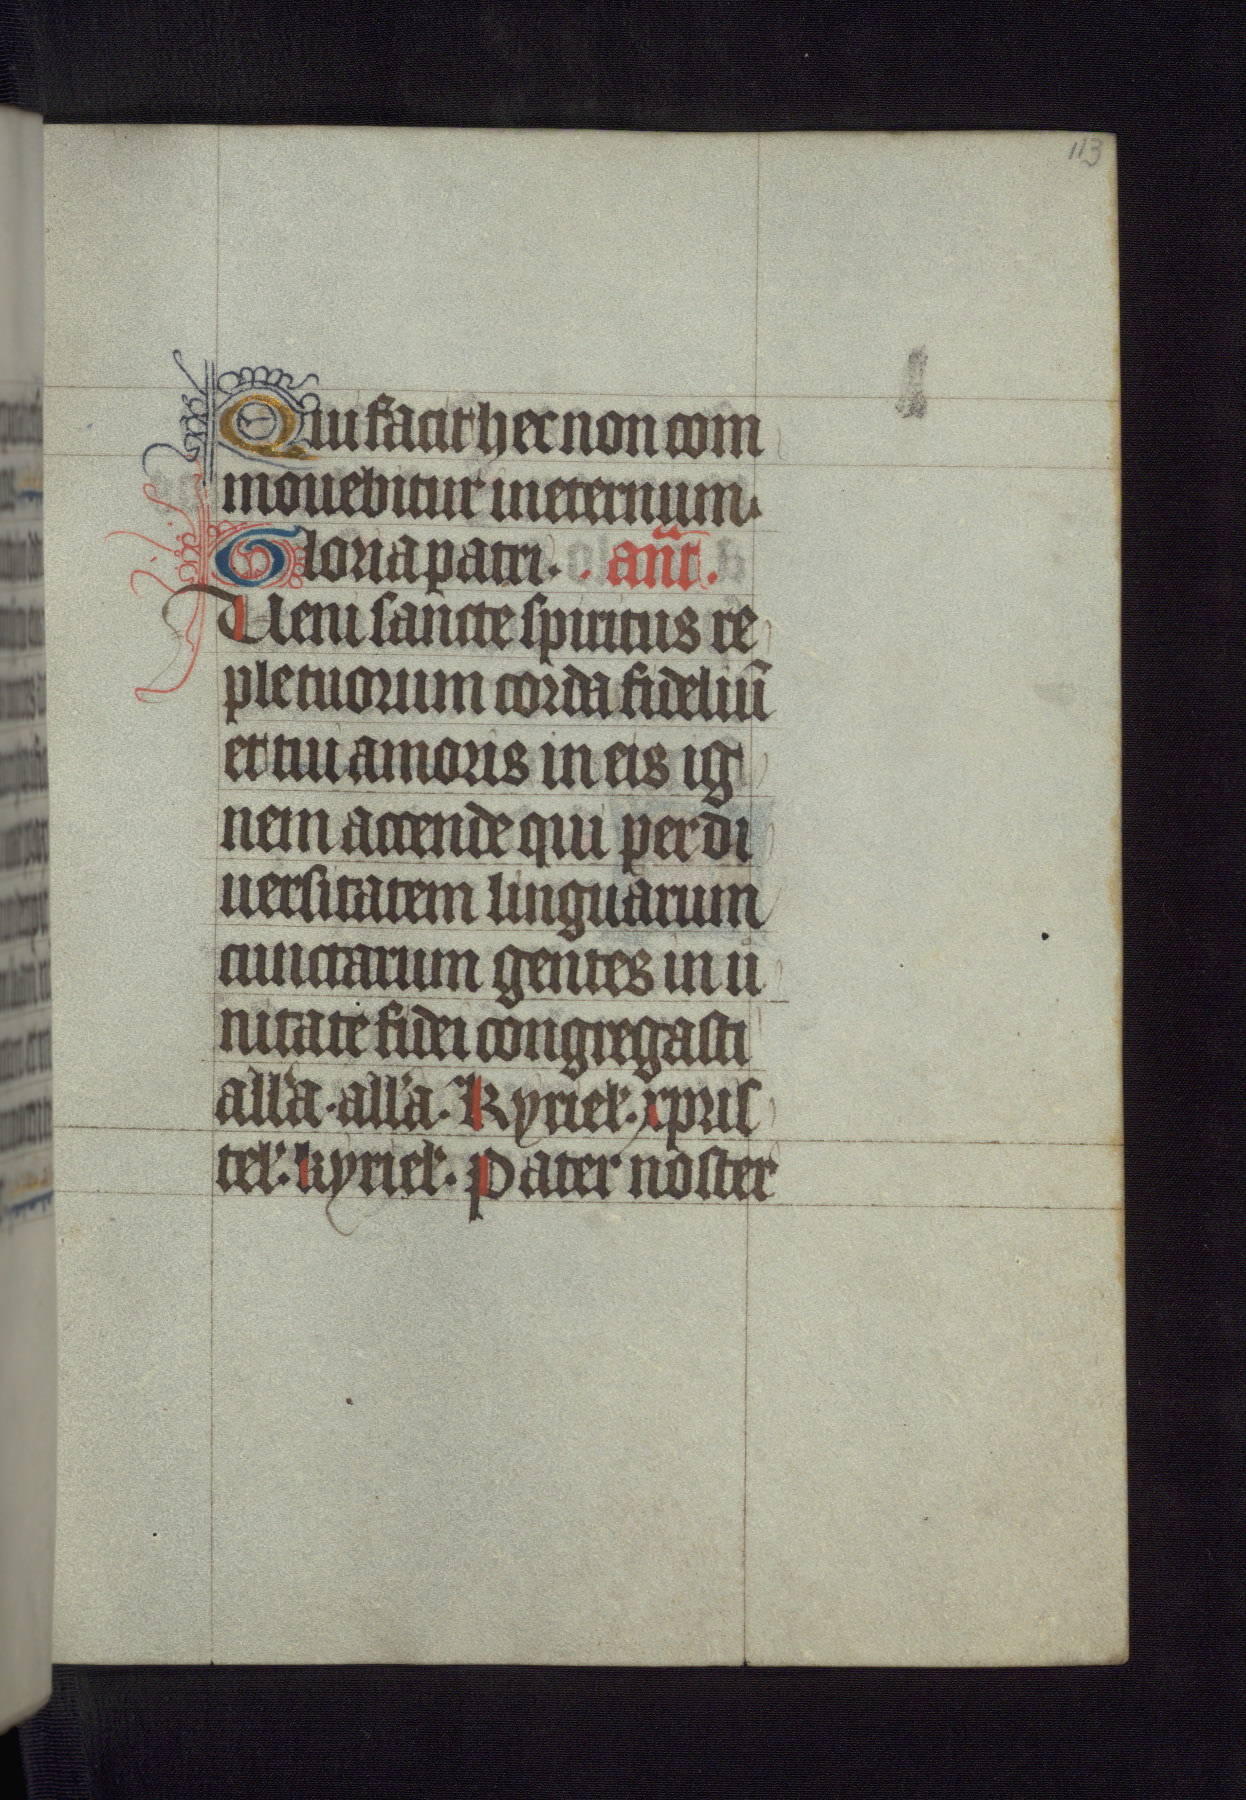 113
Qui facit hec non com
mouebitur in eternum.
Gloria patri. . an̄t.
Ueni sancte spiritus re
ple tuorum corda fideliū
et tui amoris in eis ig
nem accende qui per di
uersitatem linguarum
cunctarum gentes in u
nitate fidei congregasti
all'a. all'a. Kyriel'. xpris
tel'. kyriel'. Pater noster